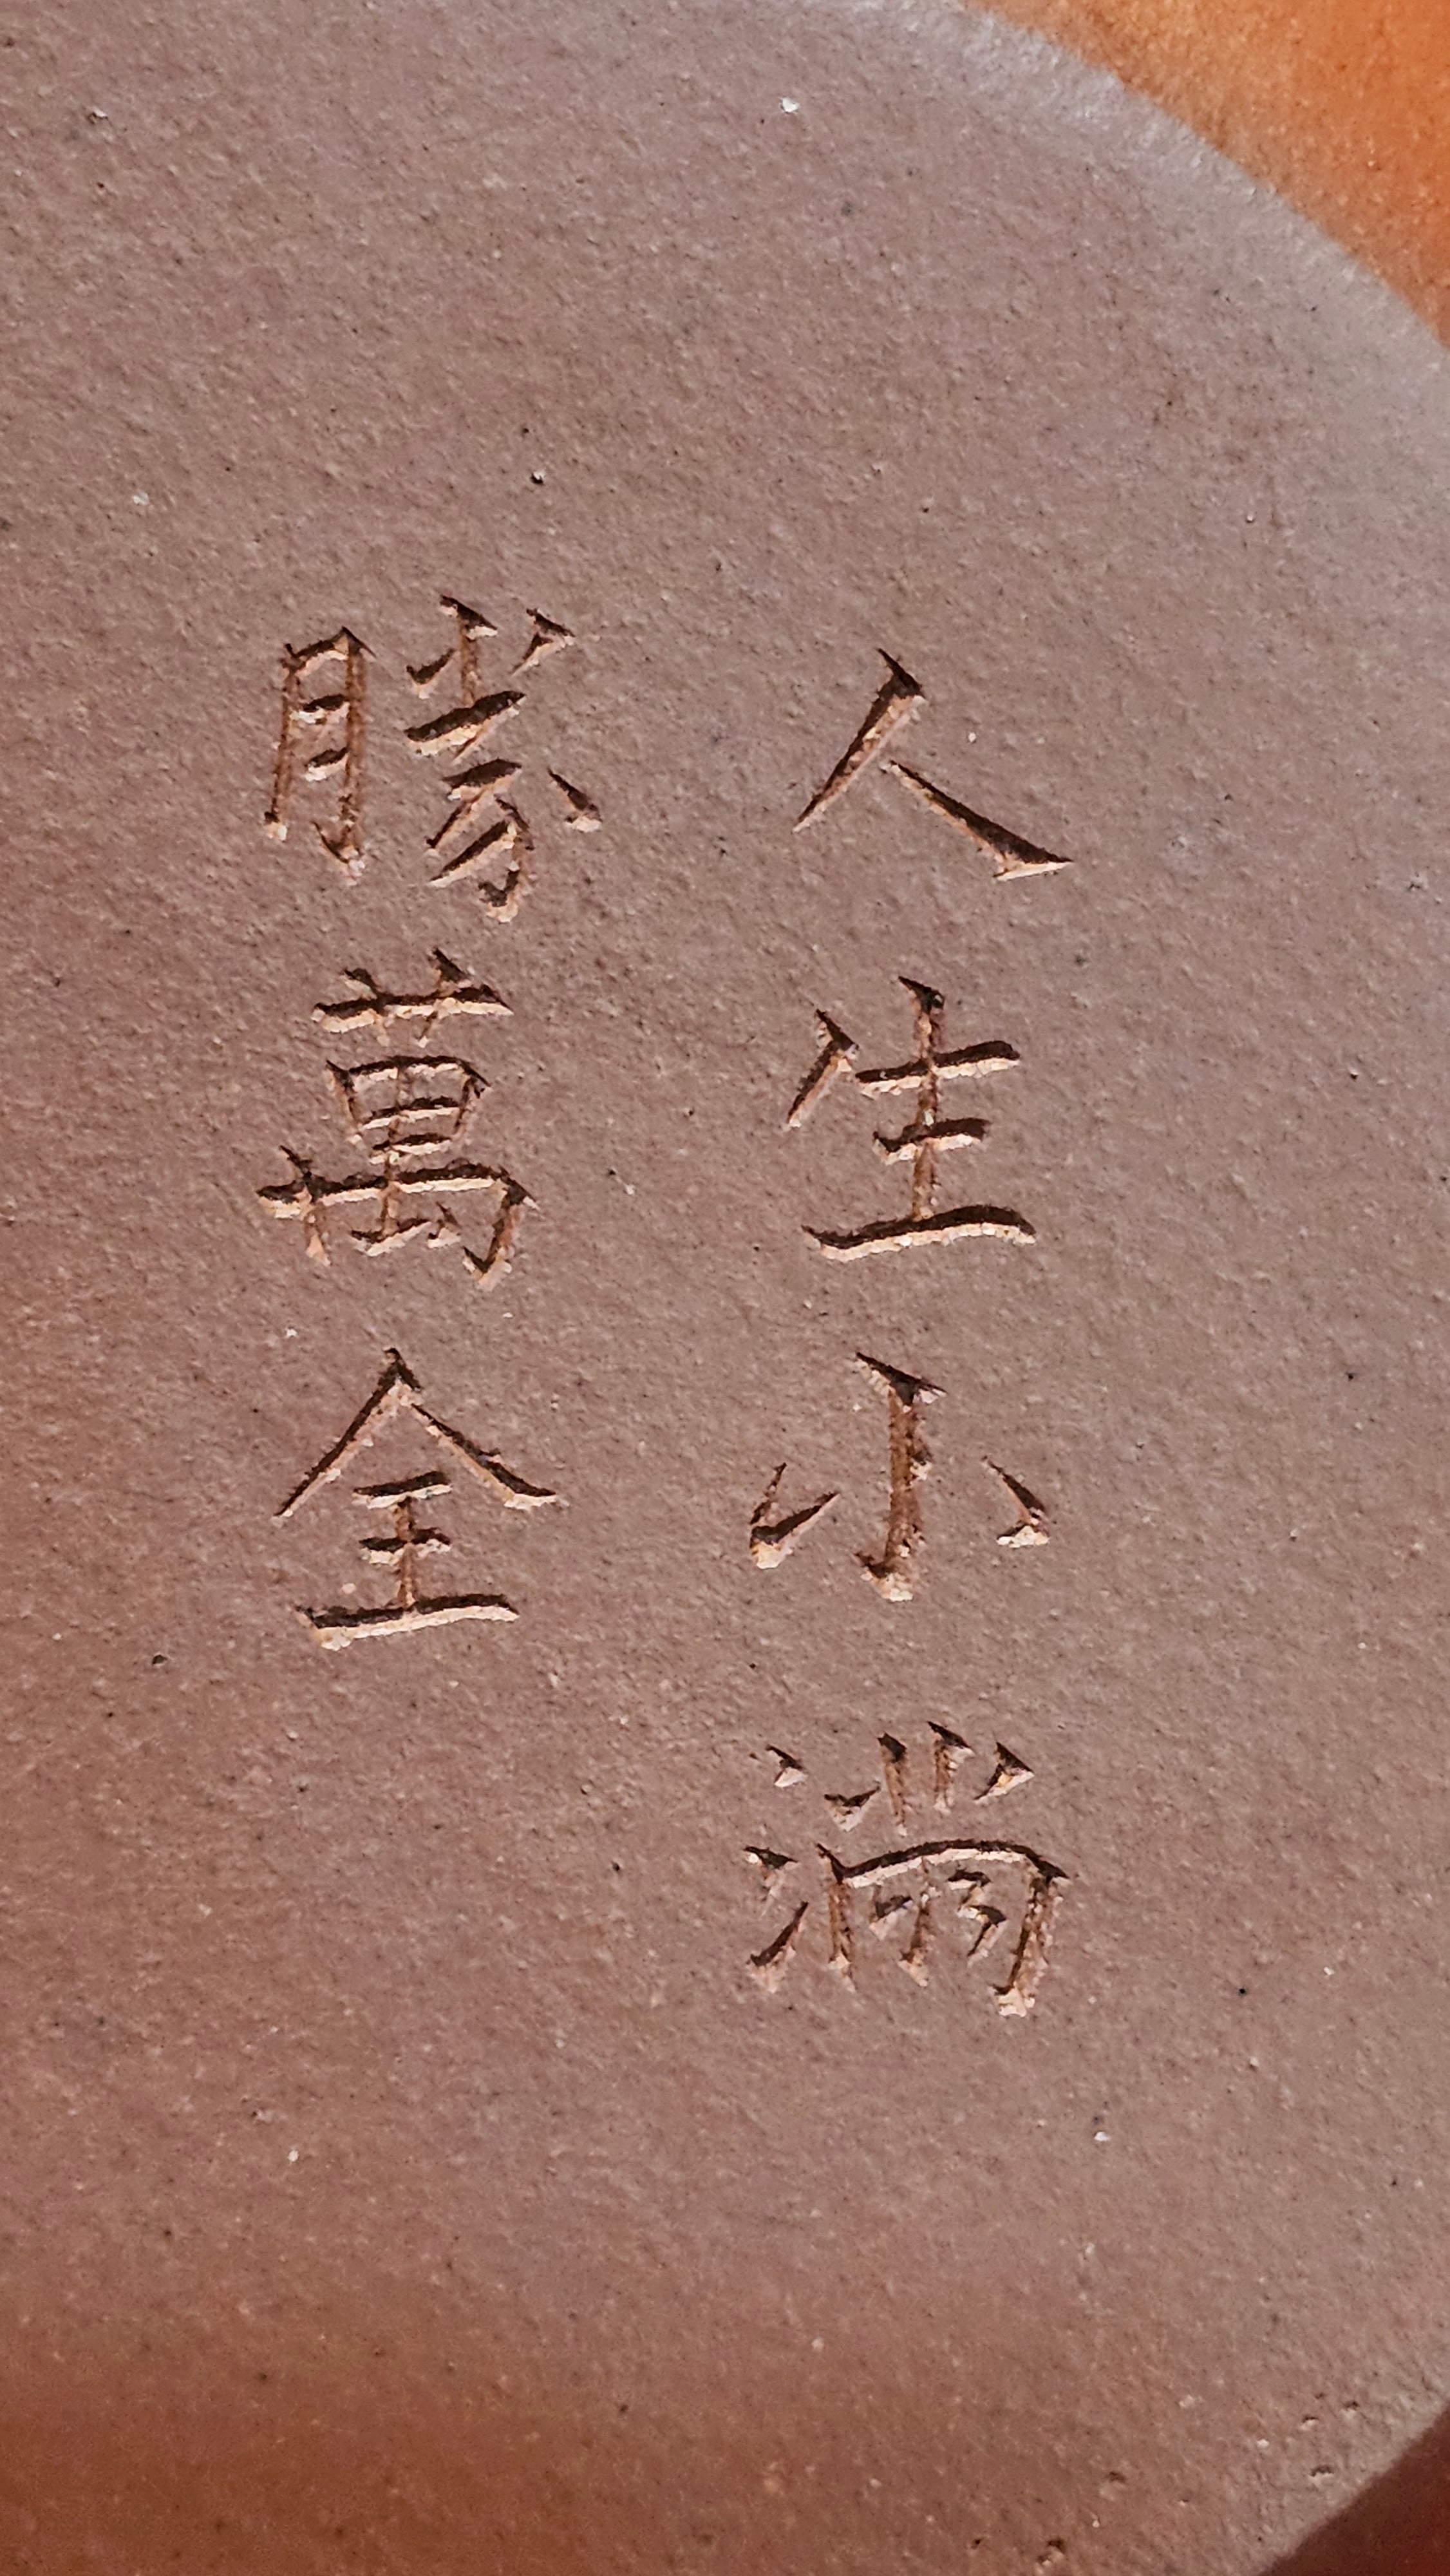 人生小滿
勝萬全